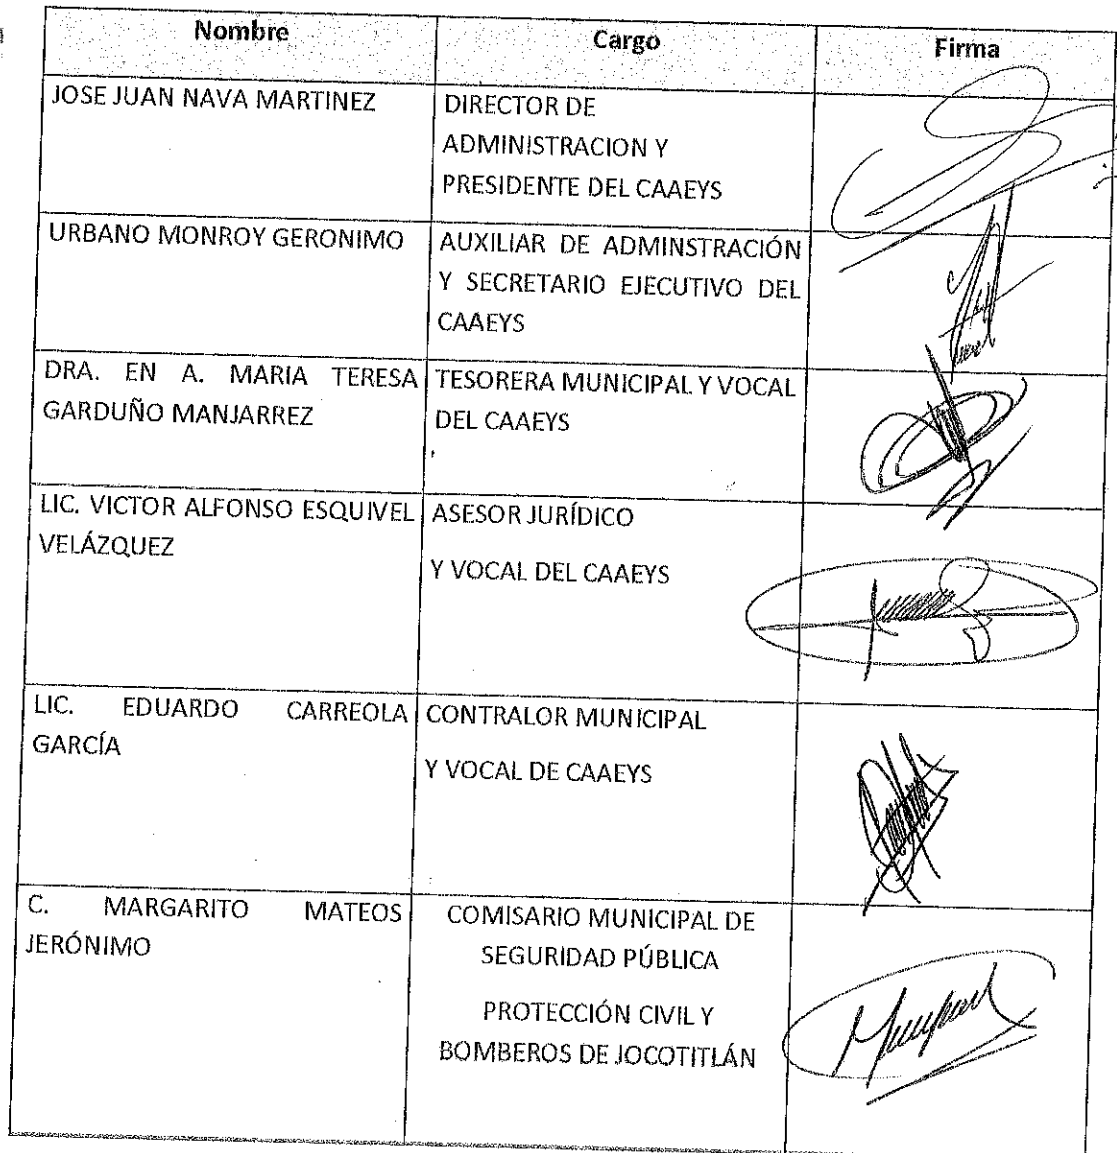 Nombre Cargo Firma
JOSE JUAN NAVA MARTINEZ
DIRECTOR DE
ADMINISTRACION Y
PRESIDENTE DEL CAAEYS
URBANO MONROY GERONIMO
AUXILIAR DE ADMINSTRACIÓN
Y SECRETARIO EJECUTIVO DEL
CAAEYS
DRA. EN A. MARIA TERESA
GARDUÑO MANJARREZ
TESORERA MUNICIPAL Y VOCAL
DEL CAAEYS
LIC. VICTOR ALFONSO ESQUIVEL
VELÁZQUEZ
ASESOR JURÍDICO
Y VOCAL DEL CAAEYS
LIC. EDUARDO CARREOLA
GARCÍA
CONTRALOR MUNICIPAL
Y VOCAL DE CAAEYS
C. MARGARITO MATEOS
JERÓNIMO
COMISARIO MUNICIPAL DE
SEGURIDAD PÚBLICA
PROTECCIÓN CIVIL Y
BOMBEROS DE JOCOTITLÁN